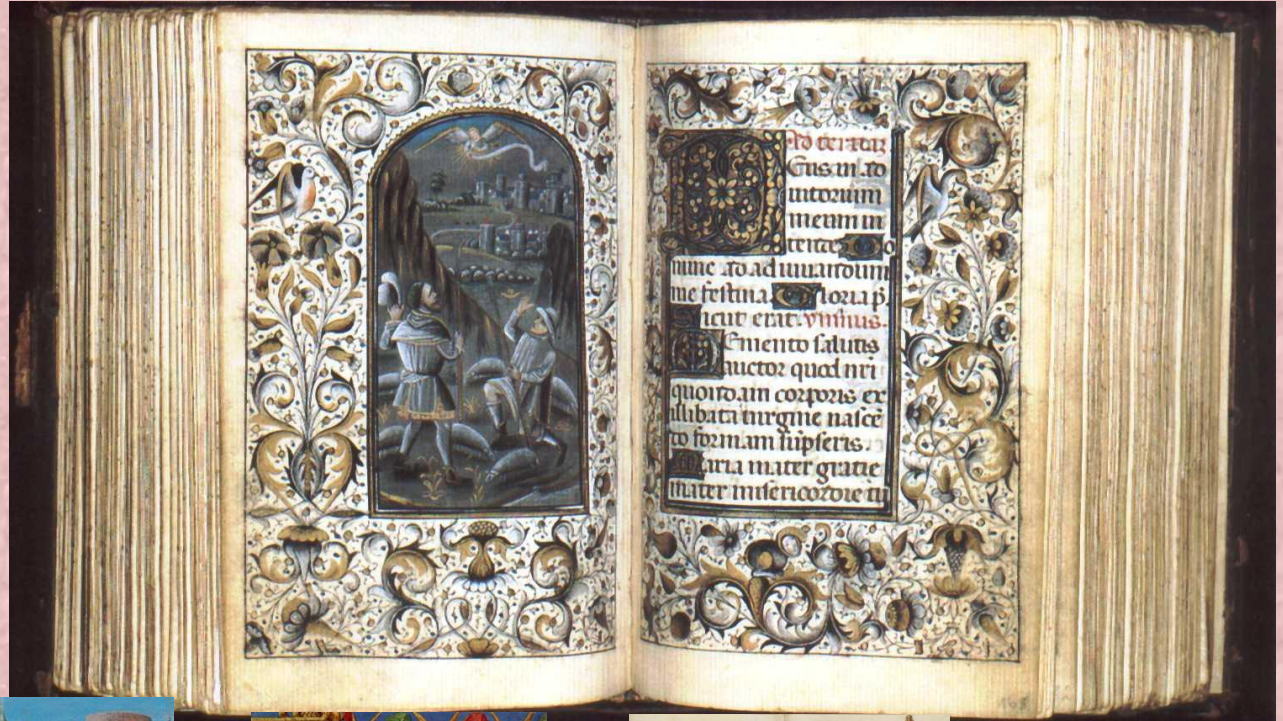 Ad tertiaz
Eus in ad
iutorium
meum in
tende Do
mine ad adiuuandum
me festina. Gloria p̄.
Sicut erat. ymnus.
Memento salutis
auctor quod nri
quondam corporis ex
illibata uirgine nascē
do formam sūpseris.
Maria mater gratie
mater misericordie tu